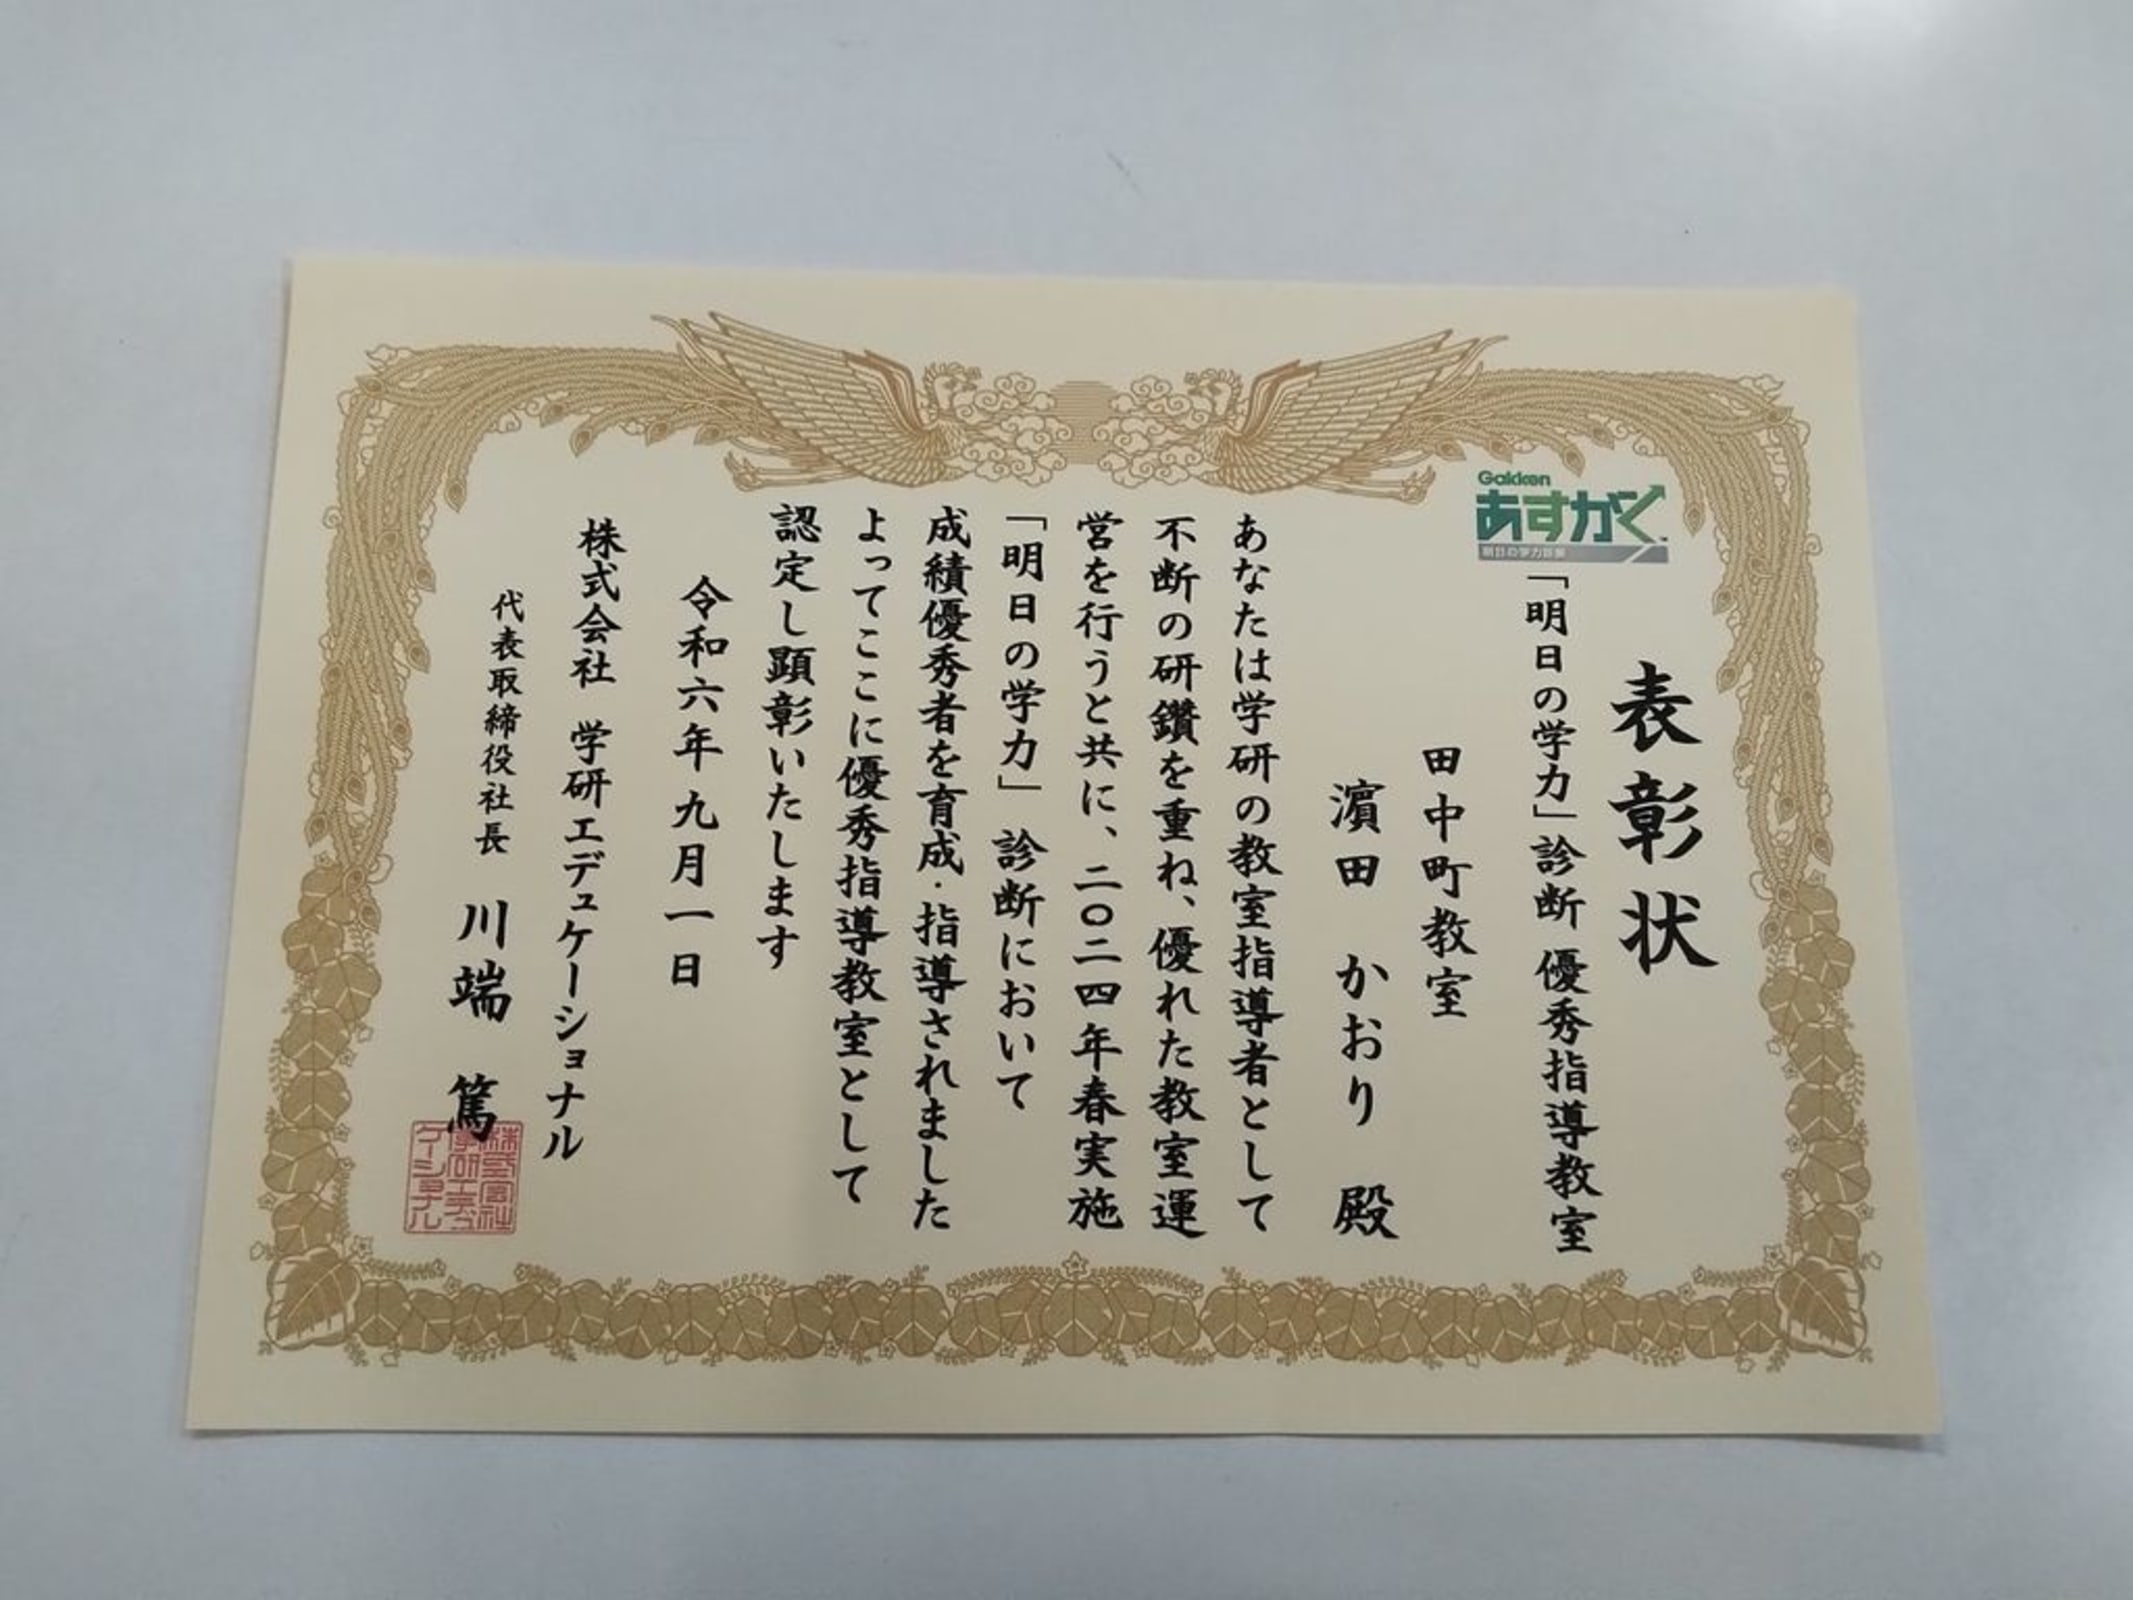 表彰状
Gakken
あすがく
明日の学力診断
「明日の学力」診断 優秀指導教室
田中町教室
濵田 かおり 殿
あなたは学研の教室指導者として
不断の研鑽を重ね、優れた教室運
営を行うと共に、二〇二四年春実施
「明日の学力」診断において
成績優秀者を育成・指導されました
よってここに優秀指導教室として
認定し顕彰いたします
令和六年九月一日
株式会社 学研エデュケーショナル
代表取締役社長 川端 篤
株式会社
学研エデュ
ケーショナル